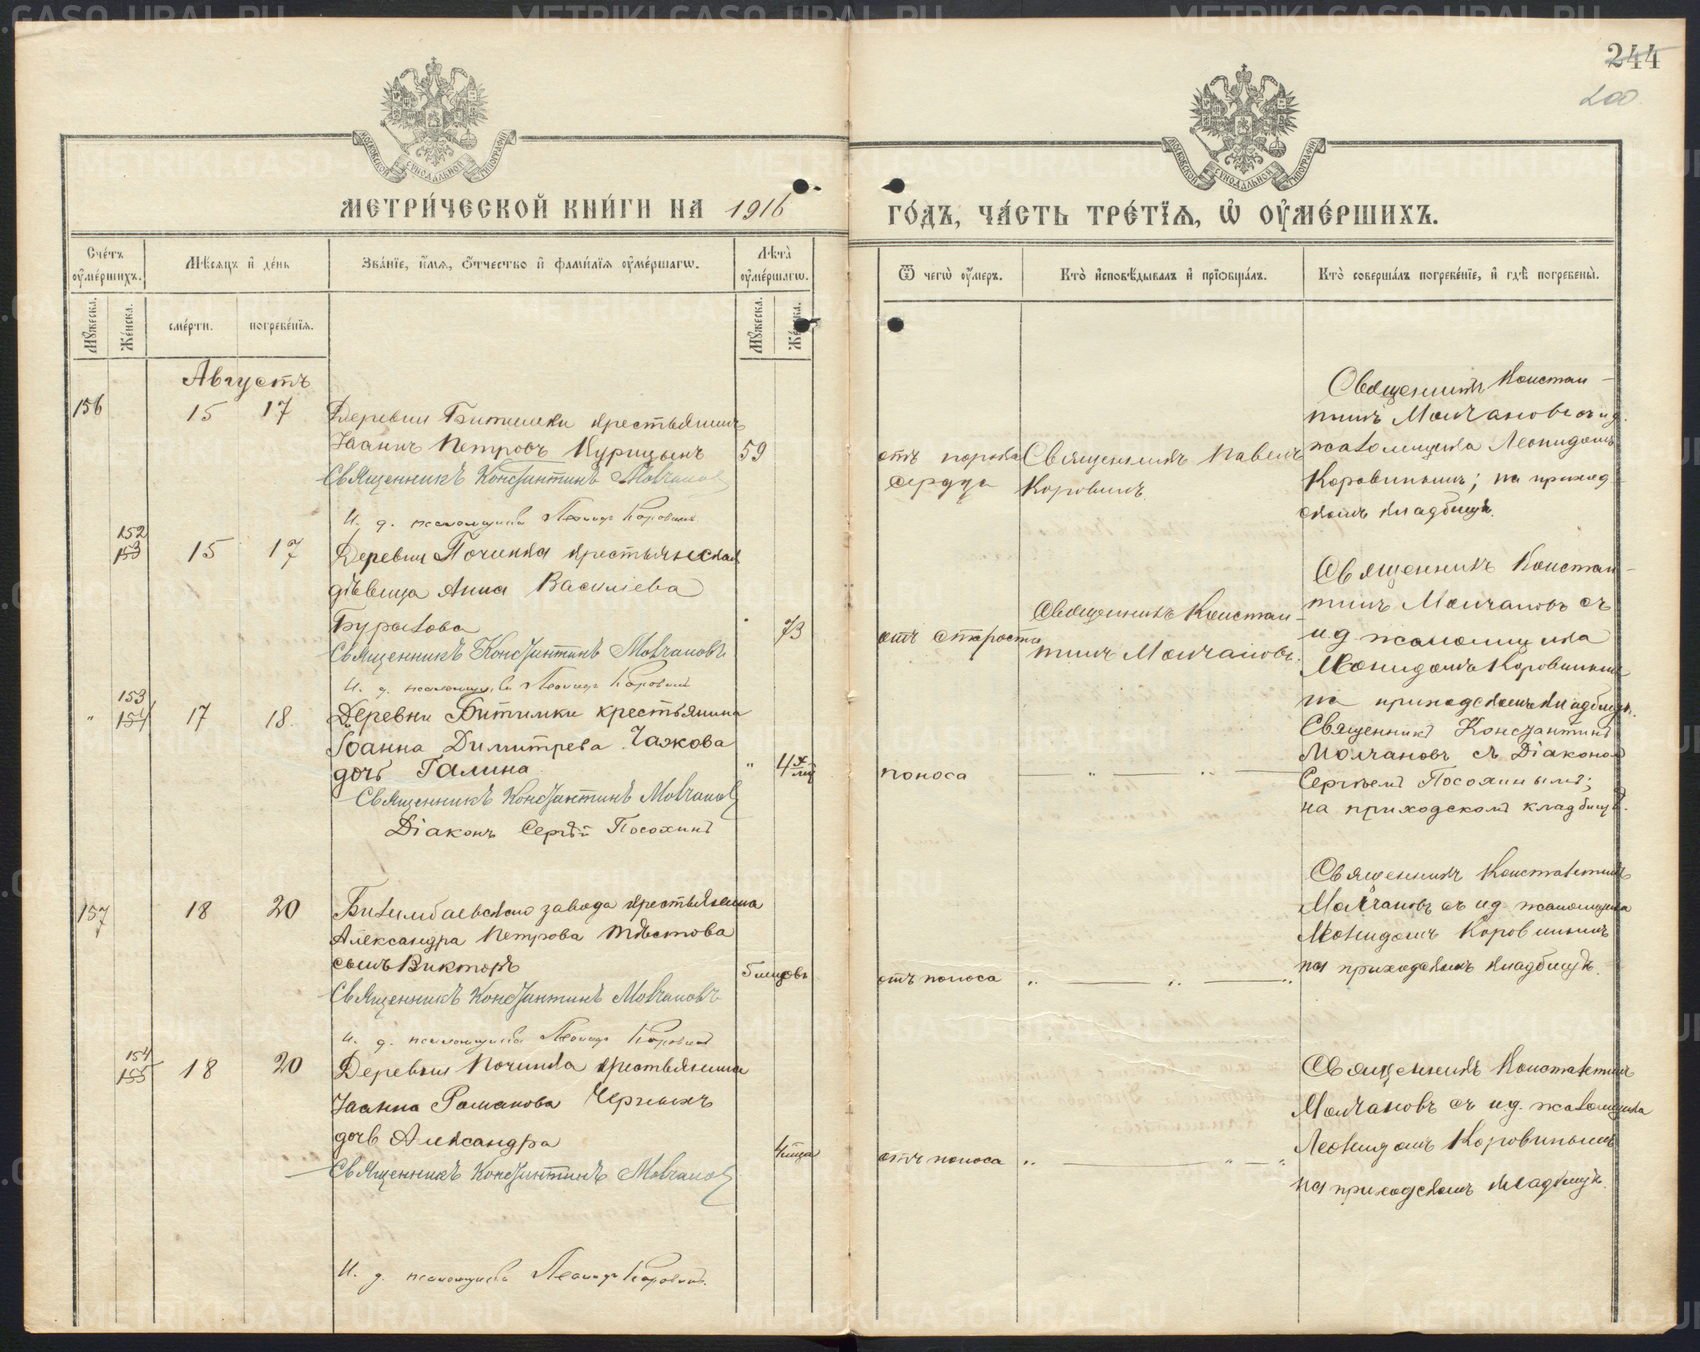 244
200
МЕТРИ́ЧЕСКОЙ КНИ́ГИ НА 1916
ГО́ДЪ, ЧА́СТЬ ТРЕ́ТЇѦ, Ѡ҆ ОУ҆МЕ́РШИХЪ.
Сче́тъ оу҆ме́ршихъ.
Мѣ́сяцъ и҆ де́нь
Зва́нїе, и҆́мя, ѻ҆́тчество и҆ фами́лїя оу҆ме́ршагѡ.
Лѣ́та̀ оу҆ме́ршагѡ.
Ѿ чегѡ̀ оу҆́меръ.
Кто̀ и҆сповѣ́дывалъ и҆ прїѡбща́лъ.
Кто̀ соверша́лъ погребе́нїе, и҆ гдѣ̀ погребены̀.
Мꙋ́жеска.
Же́нска.
сме́рти.
погребе́нїя.
Мꙋ́жеска.
Же́нска.
Августъ
156
15 17
Деревни Битимки крестьянинъ
Іоаннъ Петровъ Курицынъ
59
Священникъ Константинъ Молчановъ
И. д. псаломщика Леонидъ Коровинъ
отъ порока
сердца
Священникъ Павелъ
Коровинъ
Священникъ Констан-
тинъ Молчановъ съ и д.
псаломщика Леонидомъ
Коровинымъ; на приход-
скомъ кладбищѣ.
152
153
15 17
Деревни Починка крестьянская
дѣвица Анна Васильева
Бурылова
73
Священникъ Константинъ Молчановъ
И. д. псаломщика Леонидъ Коровинъ
отъ старости
Священникъ Констан-
тинъ Молчановъ.
Священникъ Констан-
тинъ Молчановъ съ
и д псаломщика
Леонидомъ Коровинымъ
на приходскомъ кладбищѣ.
153
154
17 18.
Деревни Битимки крестьянина
Іоанна Димитрева Чажова
дочь Галина
Священникъ Константинъ Молчановъ
Діаконъ Сергѣй Посохинъ
поноса
Священникъ Константинъ
Молчановъ съ Діакономъ
Сергѣемъ Посохинымъ;
на приходскомъ кладбищѣ.
157
18 20
Билимбаевскаго завода крестьянина
Александра Петрова Тѣстова
сынъ Викторъ
5 мцовъ
Священникъ Константинъ Молчановъ
И. д. псаломщика Леонидъ Коровинъ
отъ поноса
Священникъ Константинъ
Молчановъ съ и д. псаломщика
Леонидомъ Коровинымъ
на приходскомъ кладбищѣ.
154
155
18 20
Деревни Починка крестьянина
Іоанна Романова Черныхъ
дочь Александра
4 мца
Священникъ Константинъ Молчановъ
И. д. псаломщика Леонидъ Коровинъ.
отъ поноса
Священникъ Константинъ
Молчановъ съ и д. псаломщика
Леонидомъ Коровинымъ
на приходскомъ кладбищѣ.
METRIKI.GASO-URAL.RU